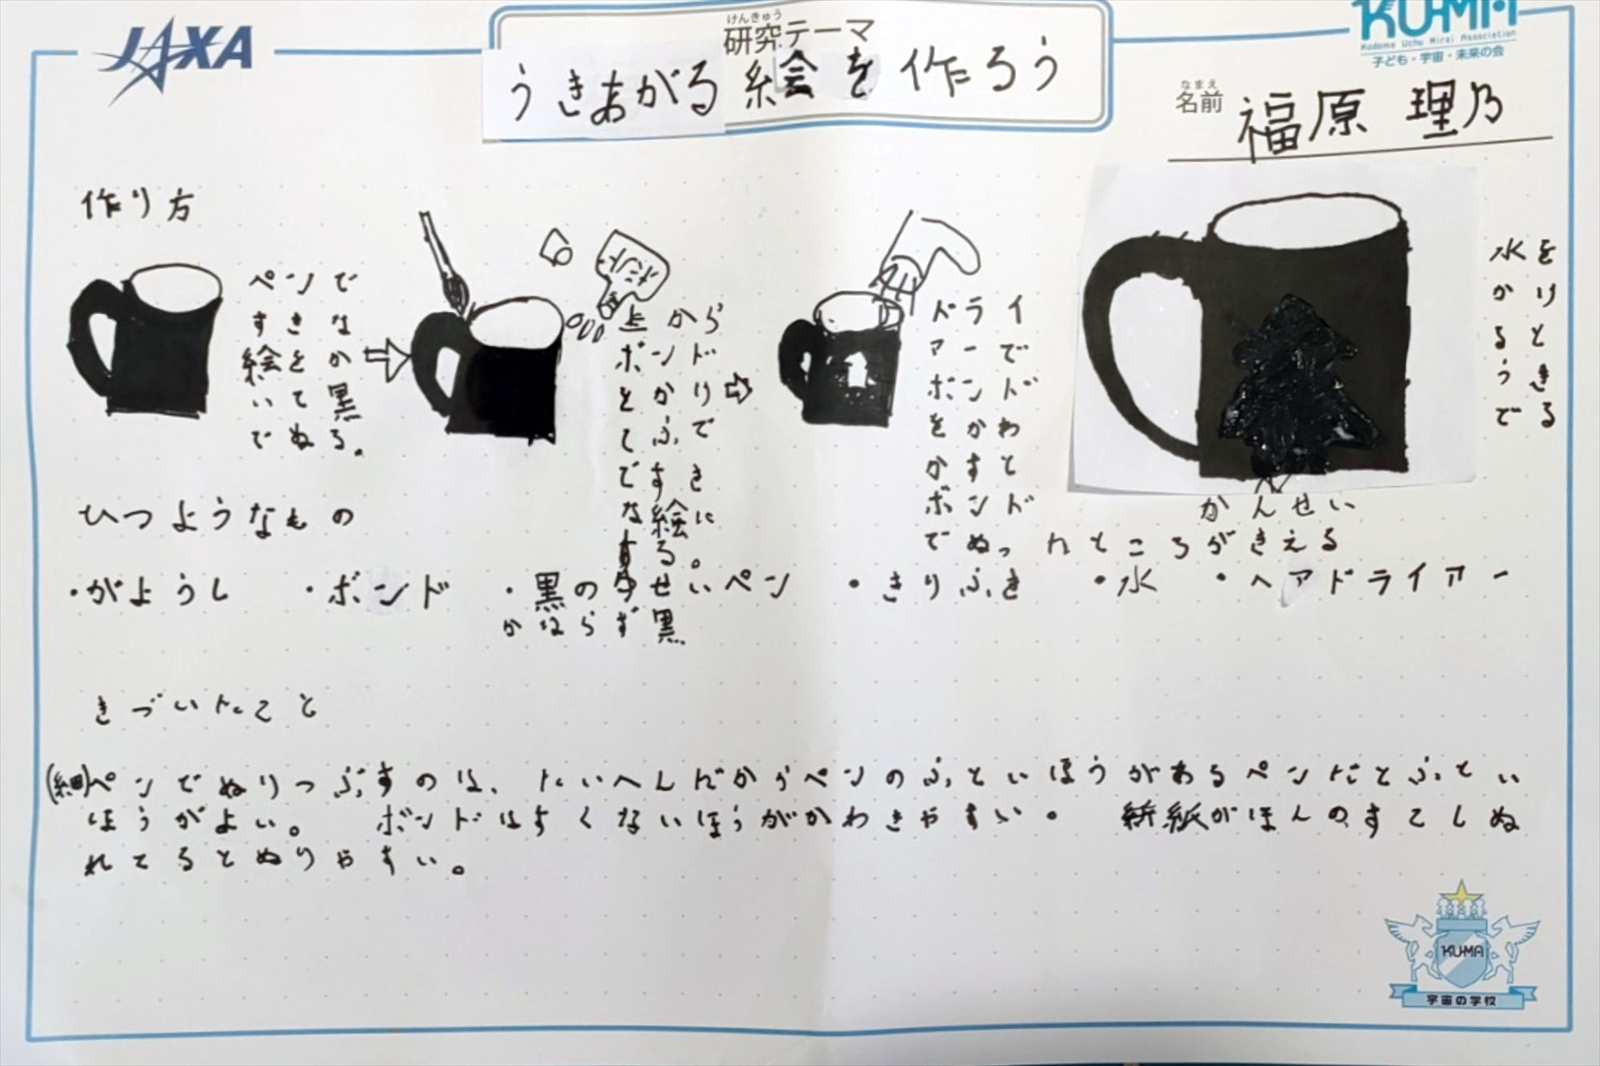 JAXA
けんきゅう
研究テーマ
うきあがる絵を作ろう
KU-MA
Kodomo Uchu Mirai Association
子ども・宇宙・未来の会
なまえ
名前
福原 理乃
作り方
ペンで
すきな
絵をか
いて黒
でぬる。
ボンド
上から
ボンド
とかり
てふで
ですき
な絵に
する。
ドライ
アーで
ボンド
をかわ
かすと
ボンド
でぬったところがきえる
水を
かけ
ると
うき
でる
かんせい
ひつようなもの
・がようし ・ボンド ・黒の水せいペン ・きりふき ・水 ・ヘアドライアー
かならず黒
きづいたこと
(細)ペンでぬりつぶすのは、たいへんだからペンのふといほうがあるペンだとふとい
ほうがよい。 ボンドはすくないほうがかわきやすい。 紙がほんのすこしぬ
れてるとぬりやすい。
KU-MA
宇宙の学校